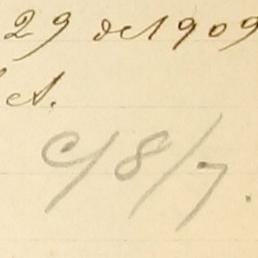 29 de 1909
et.
c/8/7.